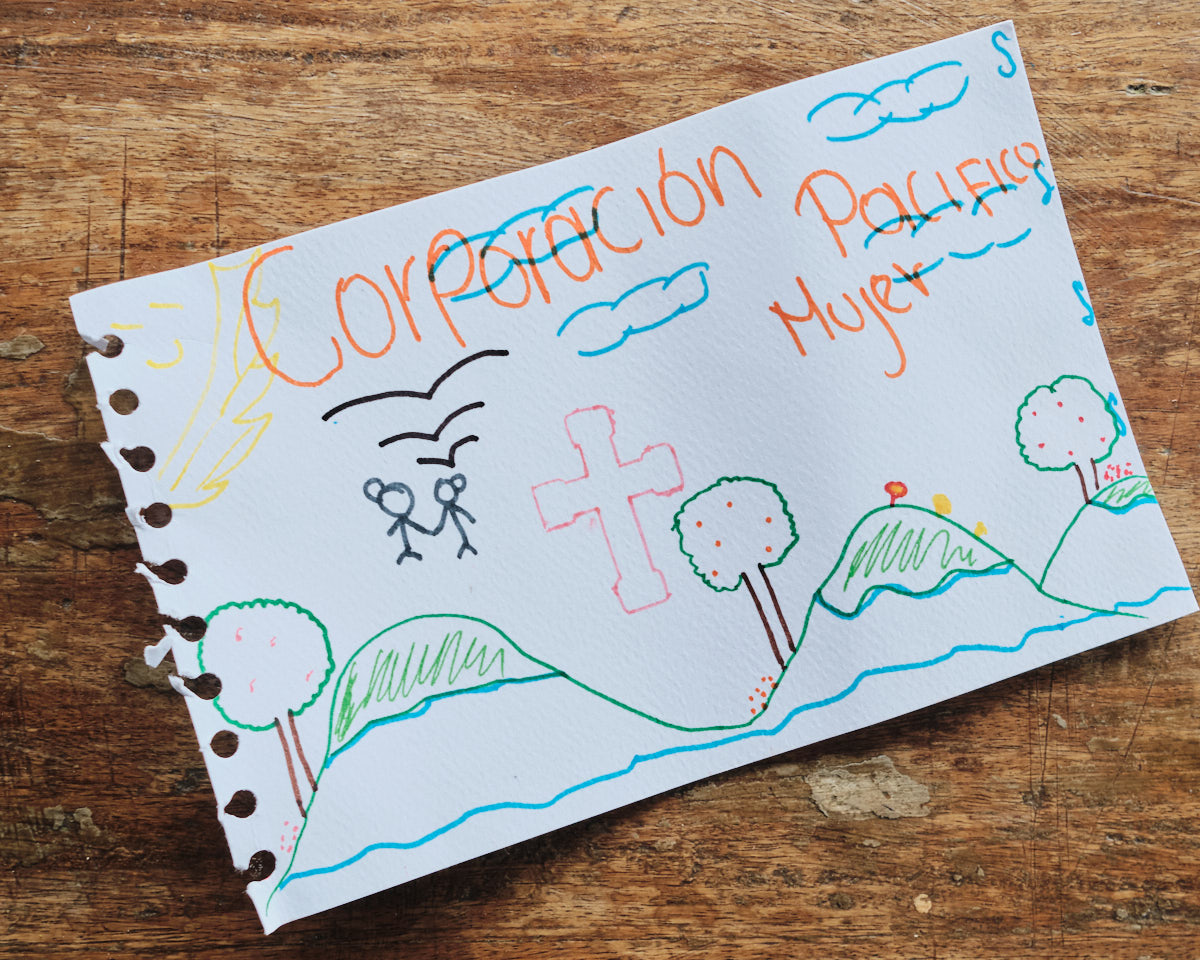 Corporación Pacifico
Mujer